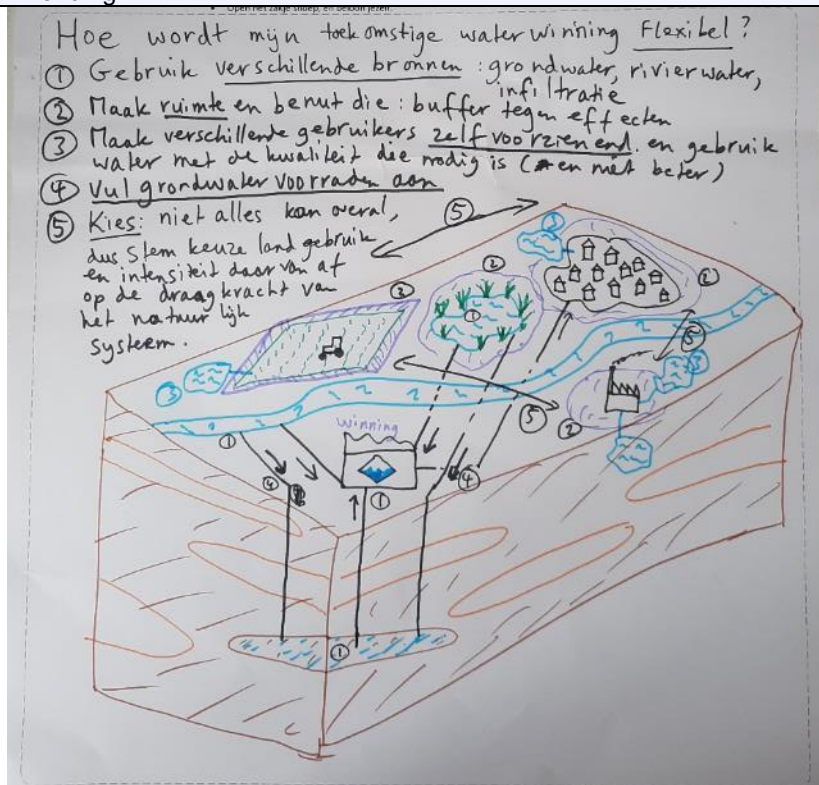 Open het zakje snoep, en beloon jezelf.
Hoe wordt mijn toekomstige waterwinning Flexibel?
① Gebruik verschillende bronnen: grondwater, rivierwater,
infiltratie
② Maak ruimte en benut die: buffer tegen effecten
③ Maak verschillende gebruikers zelfvoorzienend. en gebruik
water met de kwaliteit die nodig is (en niet beter)
④ Vul grondwatervoorraden aan
⑤ Kies: niet alles kan overal,
dus stem keuze landgebruik
en intensiteit daarvan af
op de draagkracht van
het natuurlijk
systeem.
⑤
③
②
②
②
①
③
⑤
③
winning
①
⑤
②
④
④
①
①